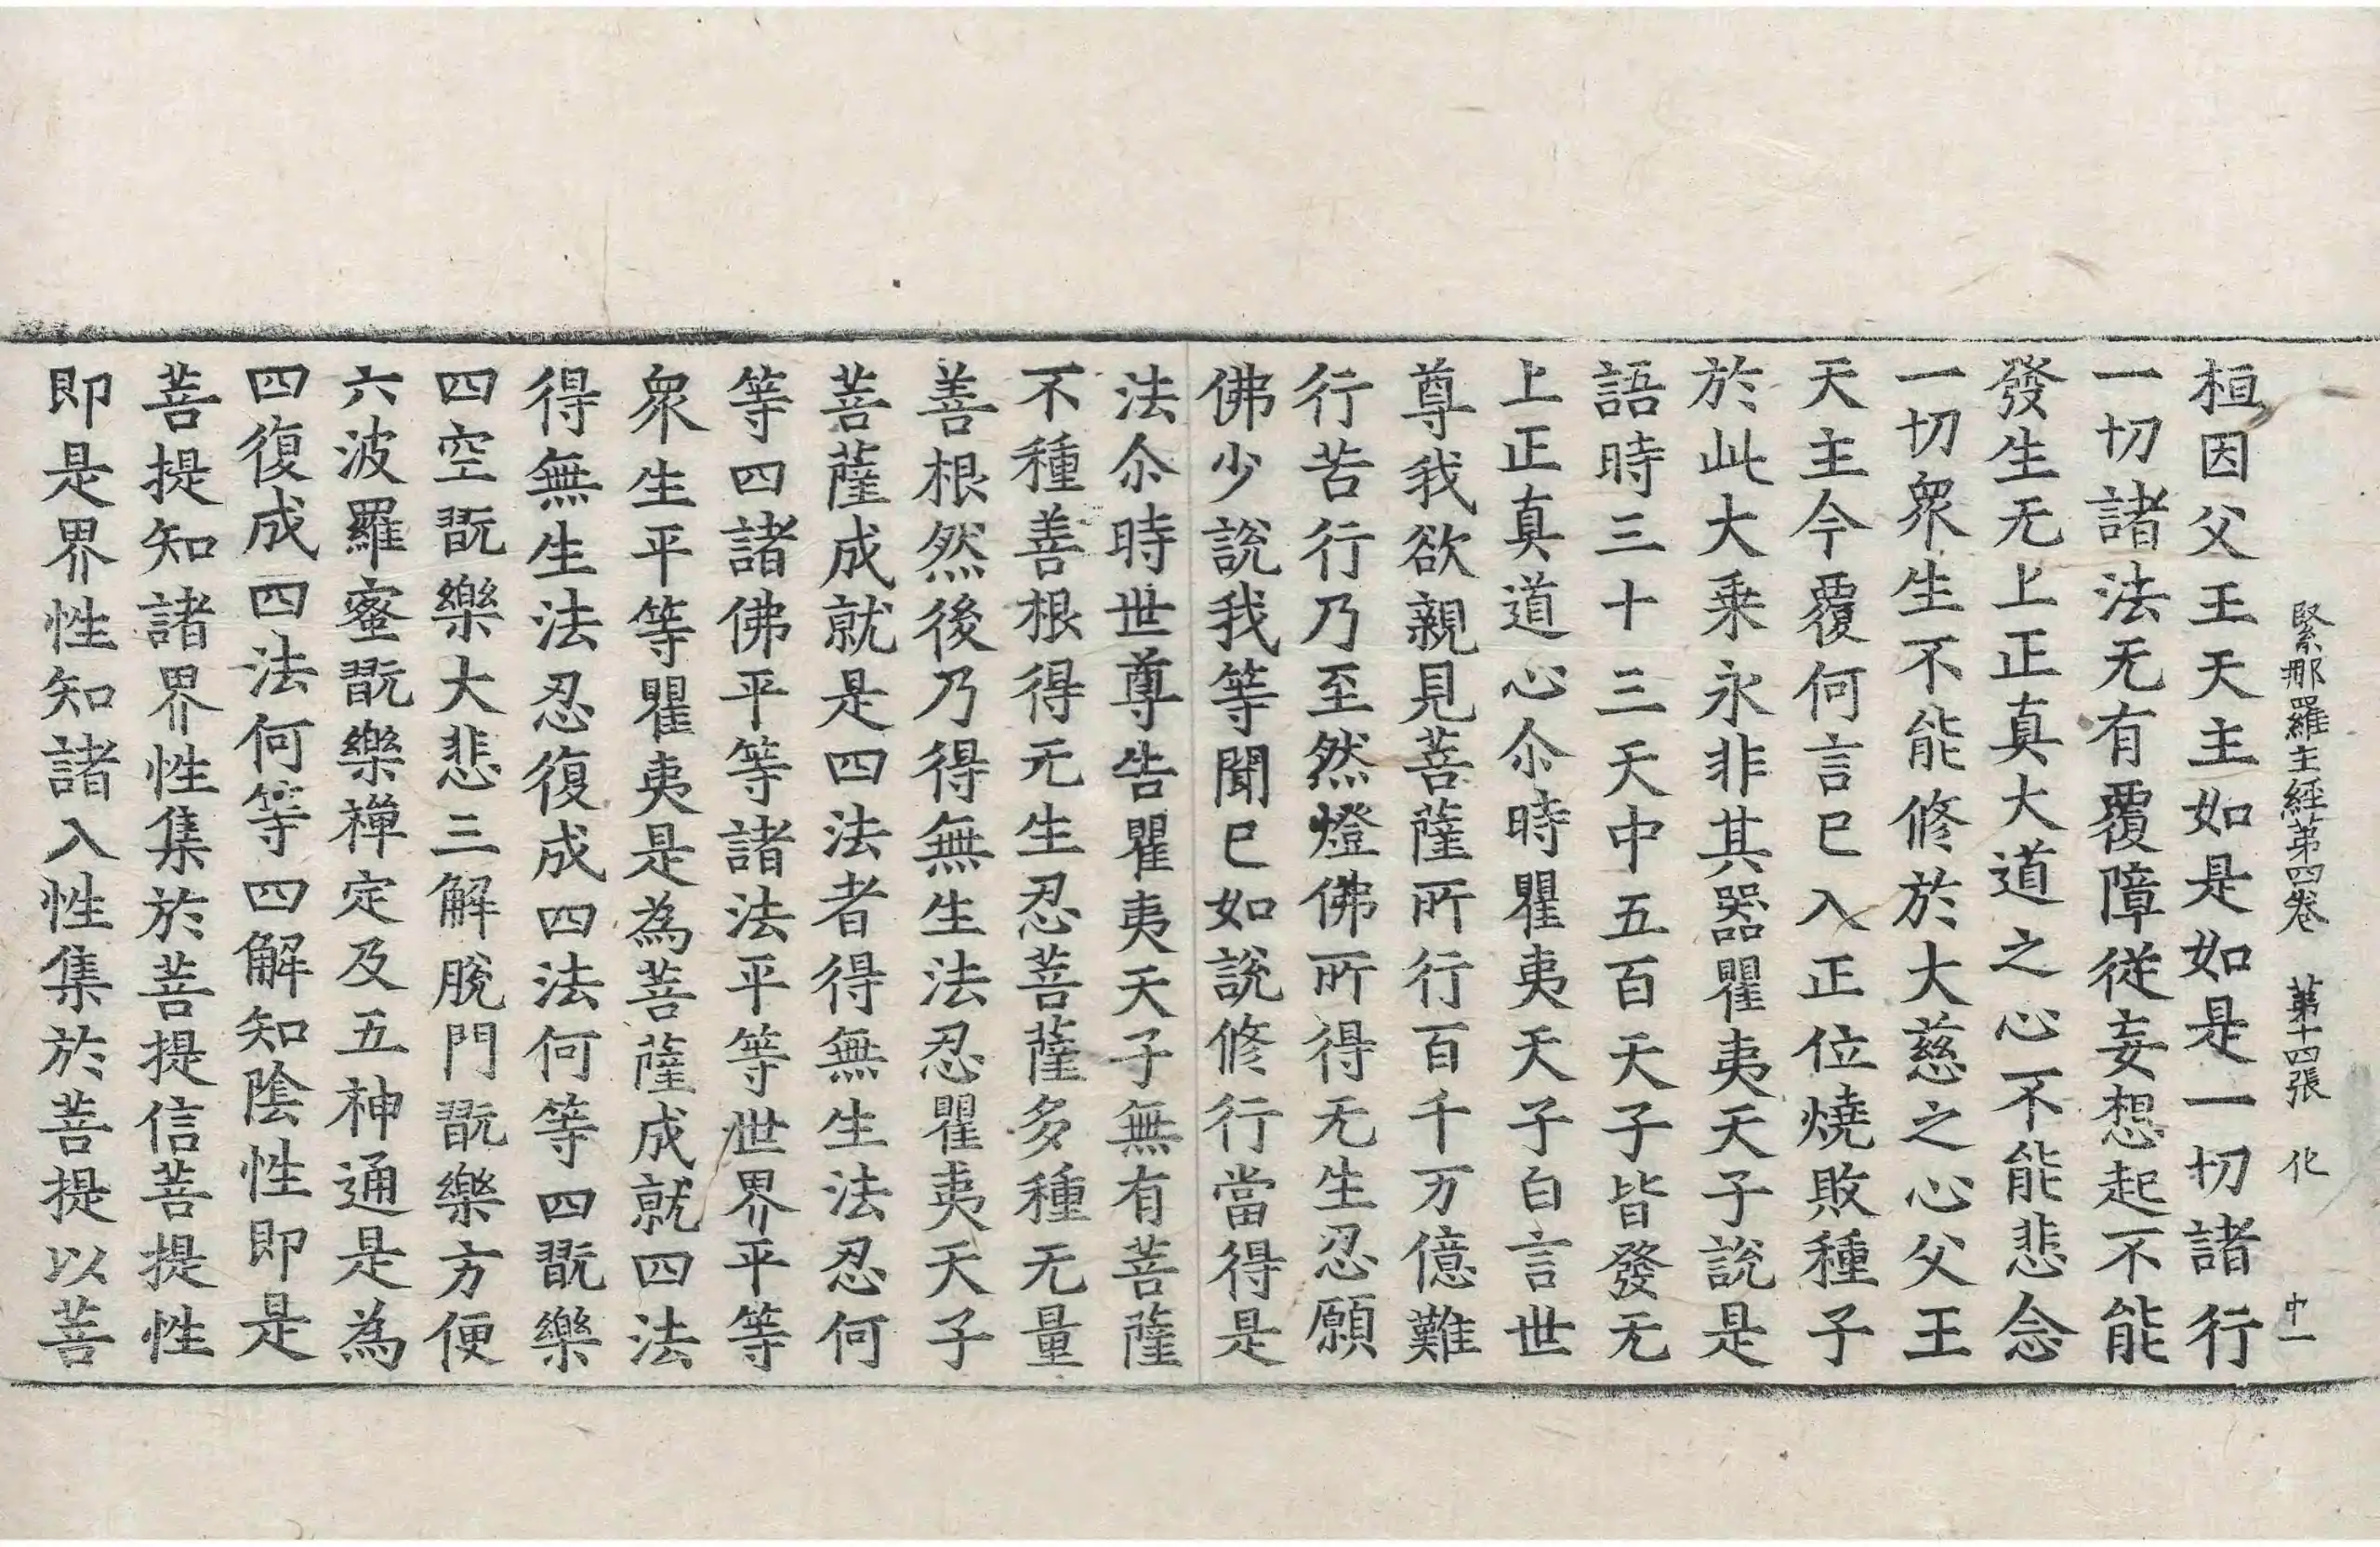 緊那羅主經第四卷 第十四張 化 中一
桓因父王天主如是如是一切諸行
一切諸法无有覆障從妄想起不能
發生无上正真大道之心不能悲念
一切衆生不能修於大慈之心父王
天主今覆何言已入正位燒敗種子
於此大乗永非其器瞿夷天子說是
語時三十三天中五百天子皆發无
上正真道心尒時瞿夷天子白言世
尊我欲親見菩薩所行百千万億難
行苦行乃至然燈佛所得无生忍願
佛少說我等聞已如說修行當得是
法尒時世尊告瞿夷天子無有菩薩
不種善根得无生忍菩薩多種无量
善根然後乃得無生法忍瞿夷天子
菩薩成就是四法者得無生法忍何
等四諸佛平等諸法平等世界平等
衆生平等瞿夷是為菩薩成就四法
得無生法忍復成四法何等四翫樂
四空翫樂大悲三解脫門翫樂方便
六波羅蜜翫樂禪定及五神通是為
四復成四法何等四解知陰性即是
菩提知諸界性集於菩提信菩提性
即是界性知諸入性集於菩提以菩